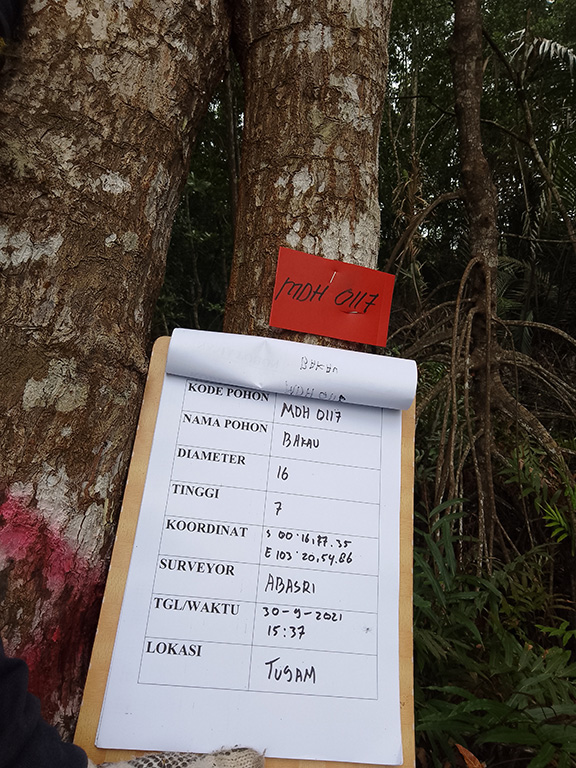 MDH 0117
BAKAU
KODE POHON MDH 0117
NAMA POHON BAKAU
DIAMETER 16
TINGGI 7
KOORDINAT S 00°16,77.35
E 103°20,54.86
SURVEYOR ABASRI
TGL/WAKTU 30-9-2021
15:37
LOKASI TUGAM